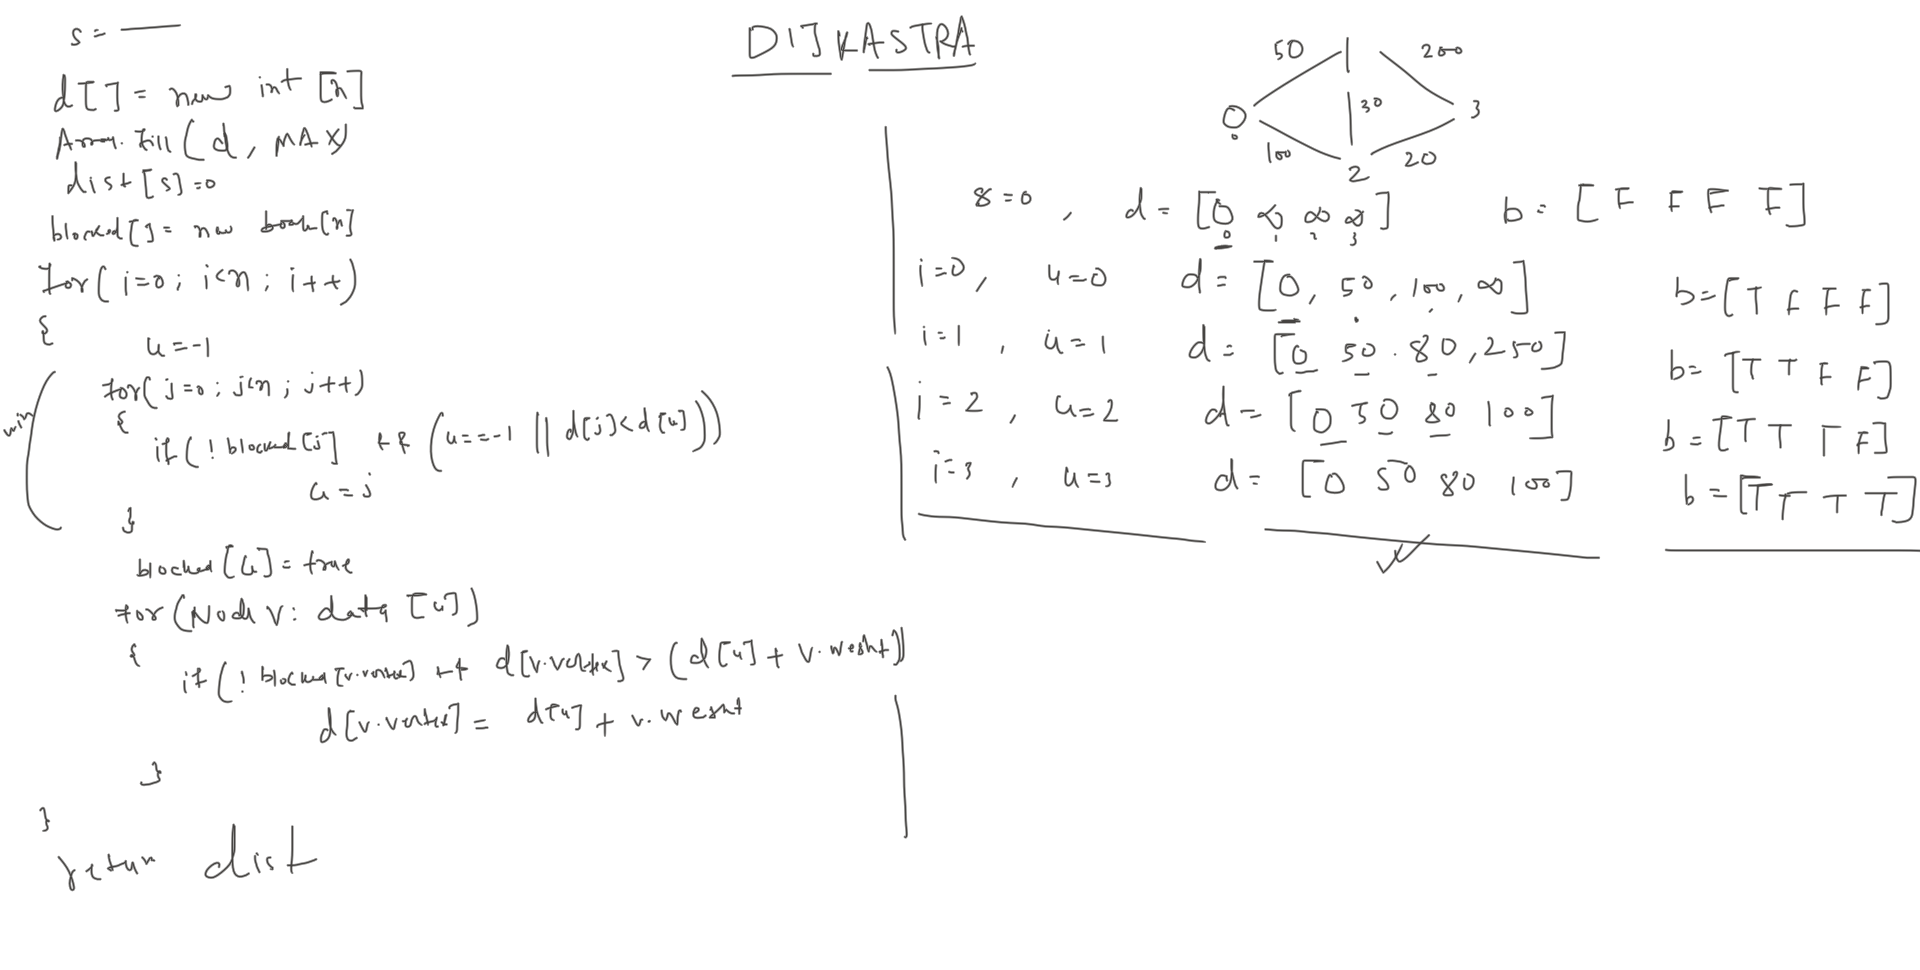 DIJKASTRA
s = ___
d[] = new int [n]
Array.fill(d, MAX)
dist[s]=0
blocked[] = new boole[n]
for(i=0; i<n; i++)
{
u=-1
for(j=0; j<n; j++)
min
{
if(!blocked[j] && (u==-1 || d[j]<d[u]))
u=j
}
blocked[u]=true
for(Node v: data[u])
{
if(!blocked[v.vertex] && d[v.vertex] > (d[u] + v.weight))
d[v.vertex] = d[u] + v.weight
}
}
return dist
50 1 200
0 30 3
0
100 2 20
s=0, d=[0 ∞ ∞ ∞] b=[F F F F]
0 1 2 3
i=0, u=0 d=[0, 50, 100, ∞] b=[T F F F]
i=1, u=1 d=[0 50 80, 250] b=[T T F F]
i=2, u=2 d=[0 50 80 100] b=[T T T F]
i=3, u=3 d=[0 50 80 100] b=[T T T T]